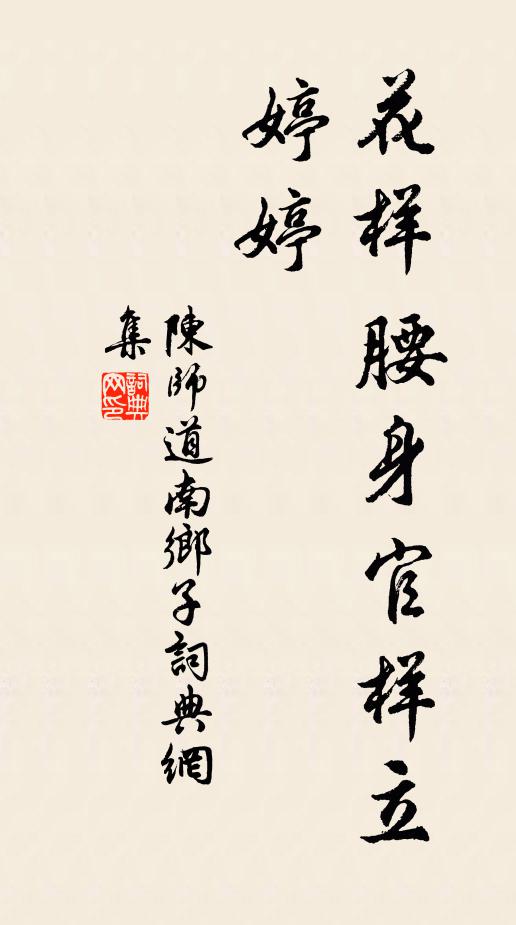 花样腰身官样立
婷婷
陳師道南鄉子詞典網
集
詞典
网印